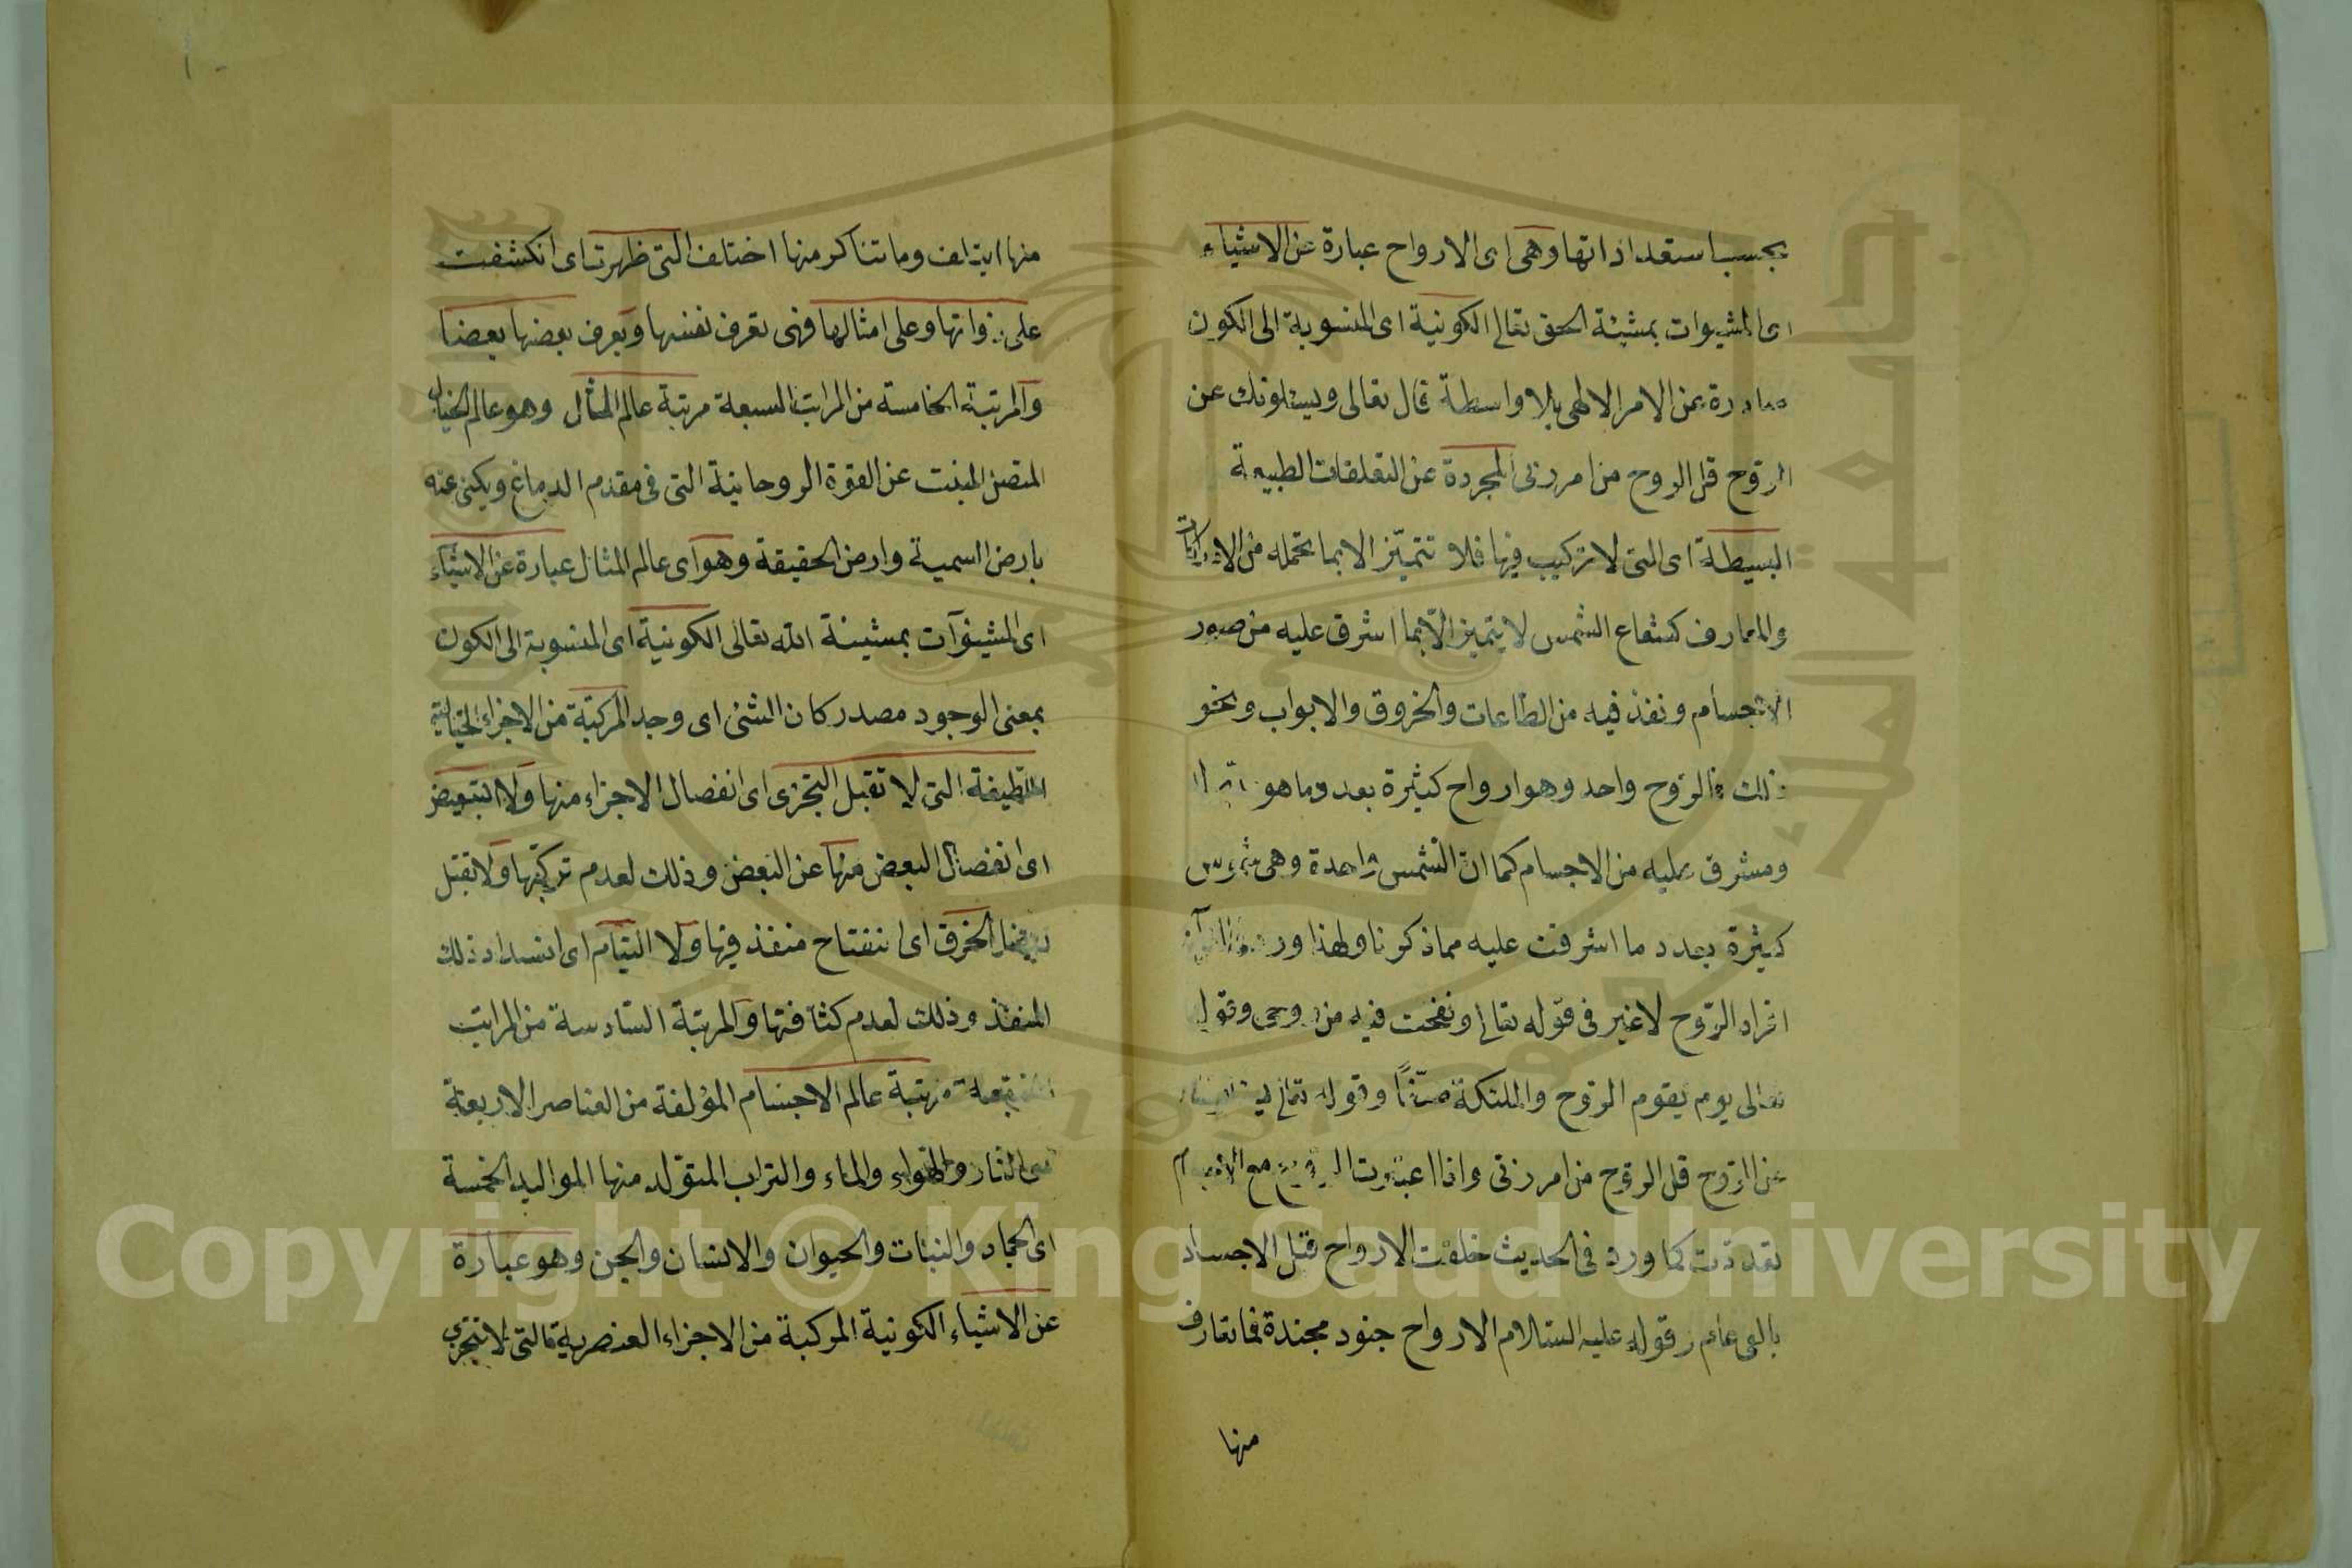 بحسب استعداداتها وهى اى الارواح عبارة عن الاشياء
اى المشيوات بمشيئة الحق تعالى الكونية اى المنسوبة الى الكون
صادرة عن الامر الالهى بلا واسطة قال تعالى ويسئلونك عن
الروح قل الروح من امر ربى المجردة عن التعلقات الطبيعية
البسيطة اى التى لا تركيب فيها فلا تتميّز الا بما تحمله من الادراكات
والمعارف كشعاع الشمس لا يتميز الّا بما اشرق عليه من صور
الاجسام ونفذ فيه من الطاعات والخروق والابواب ونحو
ذلك فالروح واحد وهو ارواح كثيرة بعدد ما هو
ومشرق عليه من الاجسام كما انّ الشمس واحدة وهى شموس
كثيرة بعدد ما اشرقت عليه مما ذكرنا ولهذا ورد
افراد الرّوح لا غير فى قوله تعالى ونفخت فيه من روحى وقوله
تعالى يوم يقوم الروح والملئكة صفّاً وقوله تعالى
عن الرّوح قل الروح من امر ربى واذا اعتبرت الروح مع الاجسام
تعددت كما ورد فى الحديث خلقت الارواح قبل الاجساد
بالفى عام وقوله عليه السّلام الارواح جنود مجندة فما تعارف
منها
منها ايتلف وما تناكر منها اختلف التى ظهرت اى انكشفت
على ذواتها وعلى امثالها فهى تعرف نفسها ويعرف بعضها بعضا
والمرتبة الخامسة من المراتب السبعة مرتبة عالم المثال وهو عالم الخيال
المتصل المنبت عن القوة الروحانية التى فى مقدم الدماغ ويكنى عنه
بارض السمسمة وارض الحقيقة وهو اى عالم المثال عبارة عن الاشياء
اى المشيئوآت بمشيئة الله تعالى الكونية اى المنسوبة الى الكون
بمعنى الوجود مصدر كان الشئ اى وجد المركبة من الاجزاء الخيالية
اللّطيفة التى لا تقبل التجزى اى انفصال الاجزاء منها ولا التبعيض
اى انفصال البعض منها عن البعض وذلك لعدم تركبّها ولا تقبل
ايضا الخرق اى انفتاح منفذ فيها ولا التيام اى انسداد ذلك
المنفذ وذلك لعدم كثافتها والمرتبة السّادسة من المراتب
السبعة مرتبة عالم الاجسام المؤلفة من العناصر الاربعة
اى النار والهواء والماء والتراب المتولد منها المواليد الخمسة
اى الجماد والنبات والحيوان والانسان والجن وهو عبارة
عن الاشياء الكونية المركبة من الاجزاء العنصرية التى لا تتجزى
Copyright © King Saud University